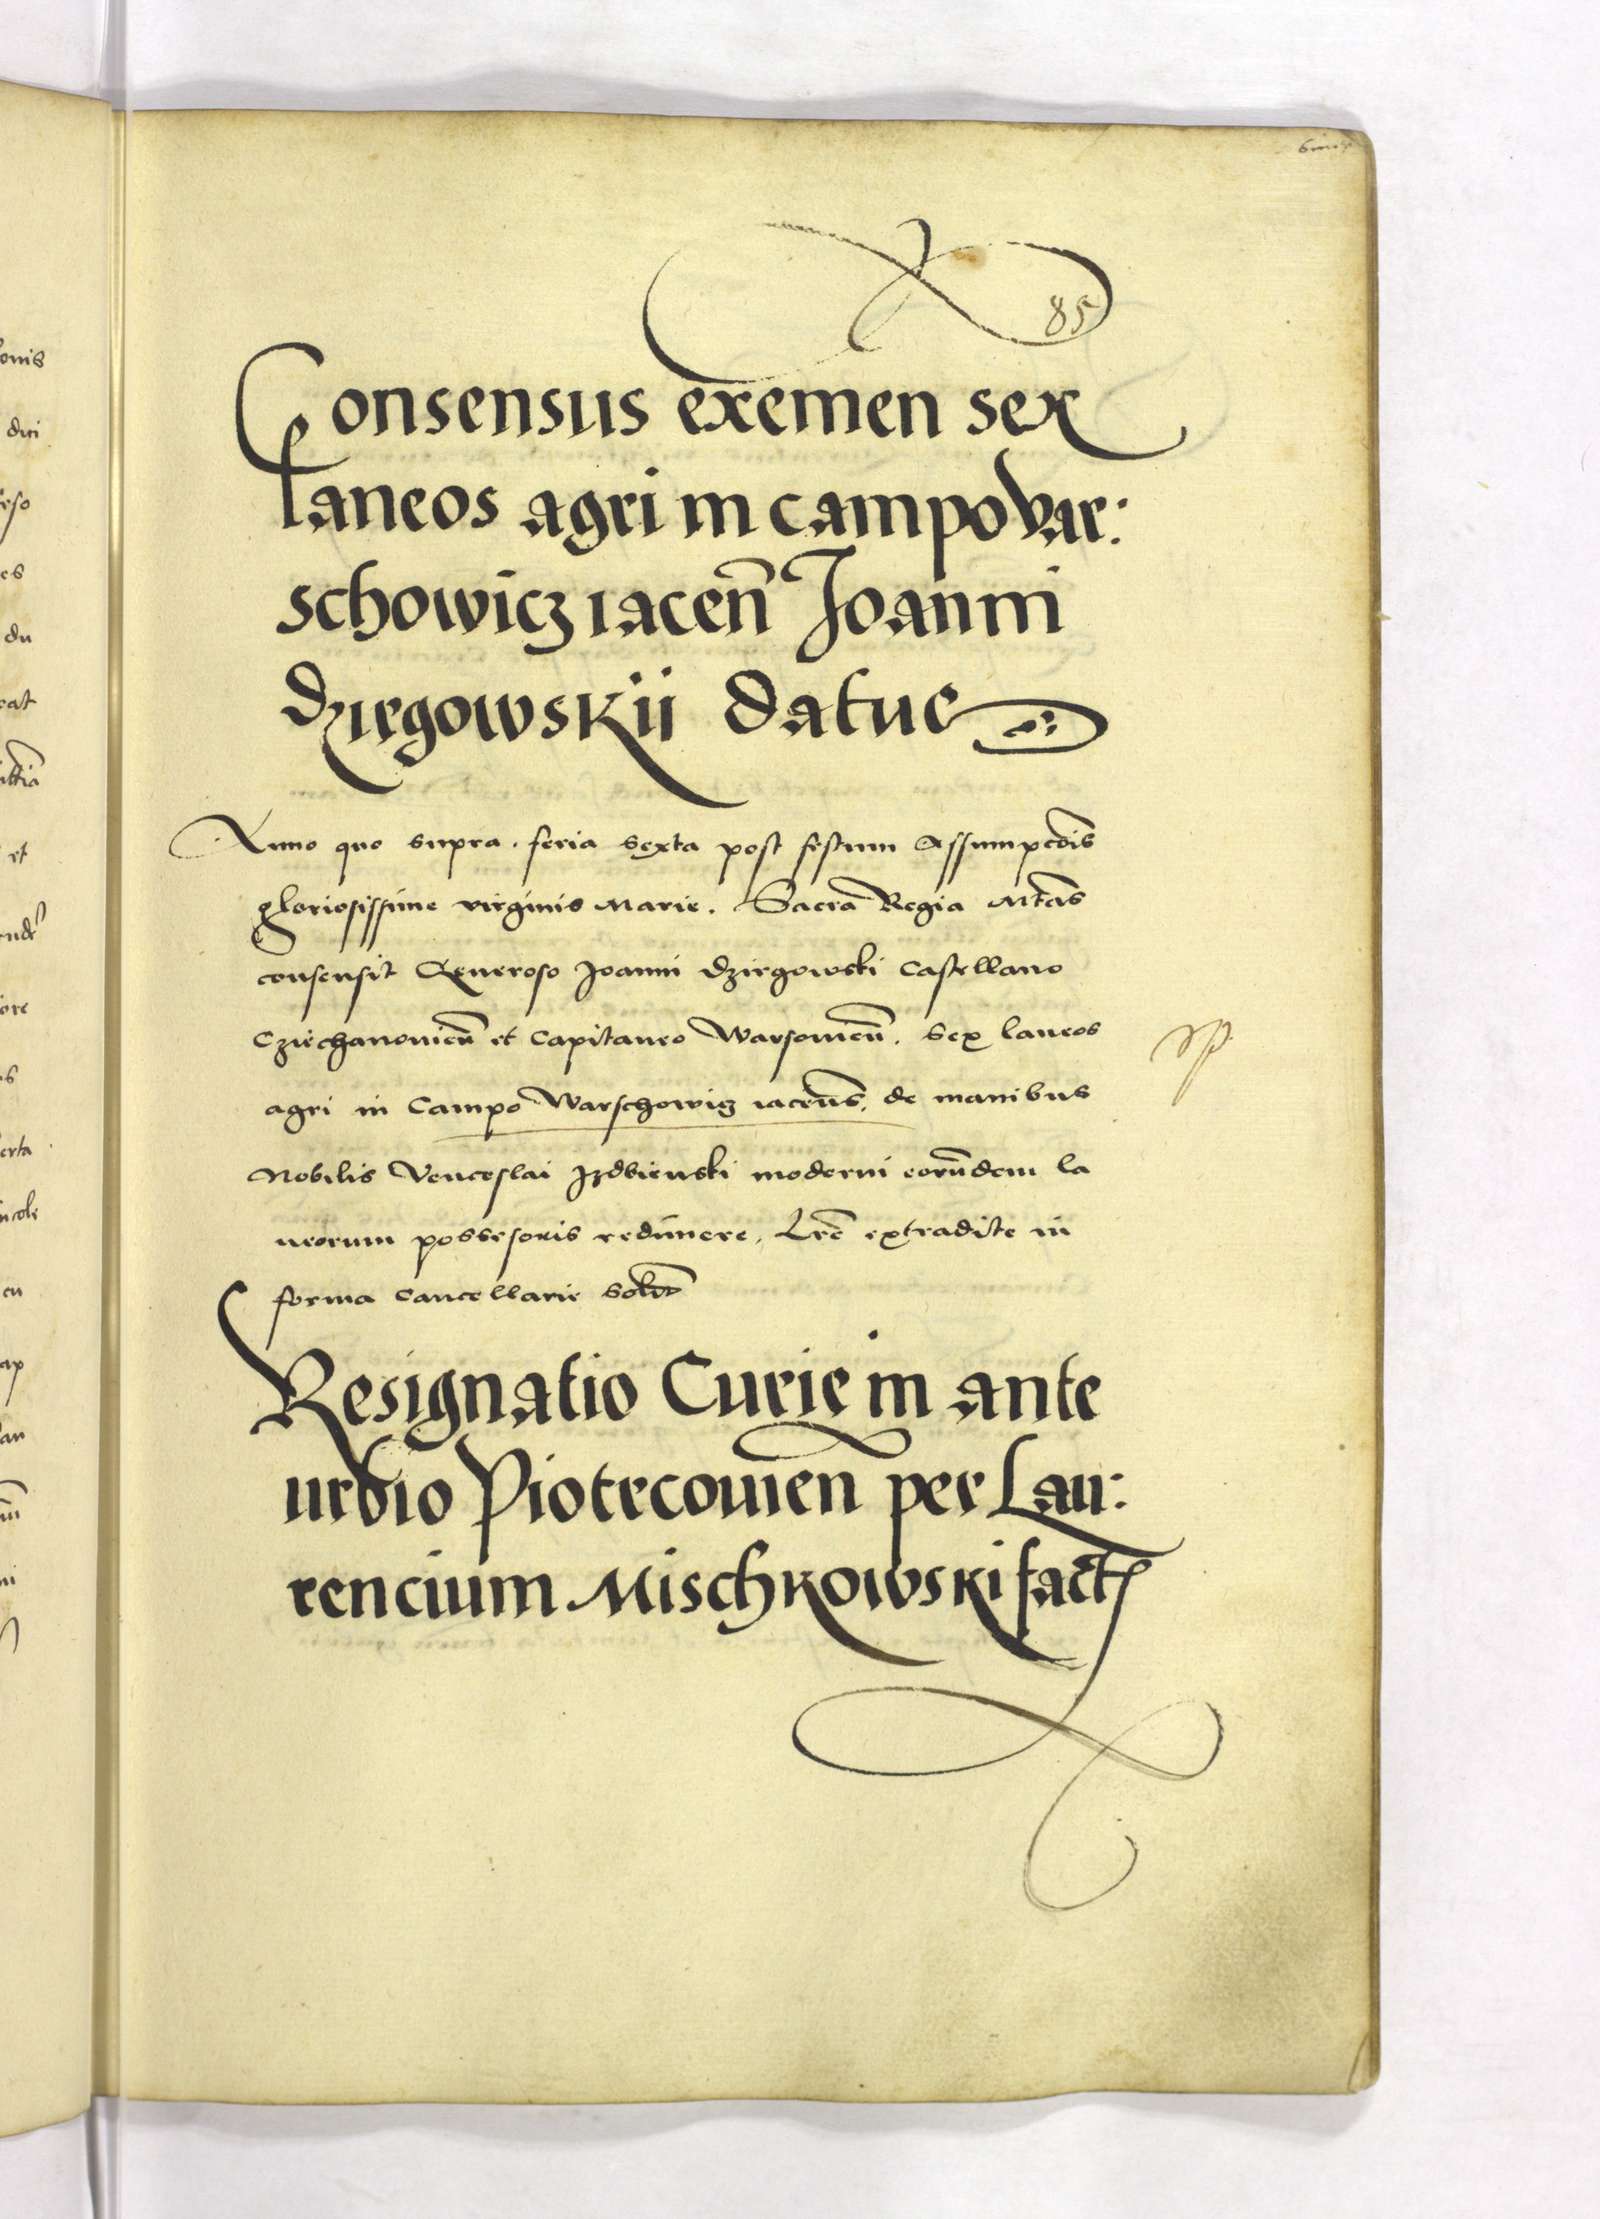 85
Consensus exemen sex
laneos agri in campo Var:
schowicz iacen̄ Joanni
dzirgowskii datur
Anno quo supra. feria sexta post festum Assumpcōis
gloriosissime virginis Marie. Sacra Regia Mtās
consensit Generoso Joanni Dzirgowski Castellano
Cziechanovien̄ et Capitaneo Warsovien̄. Sex laneos
agri in Campo Warschowicz iacen̄s, de manibus
Nobilis Venceslai Izdbienski moderni eorūndem la
neorum possesoris redimere. Lrē extradite in
forma cancellarie solit̄
Resignatio Curie in ante
urbio Piotrcovien̄ per Lau:
rencium Mischkowski fact